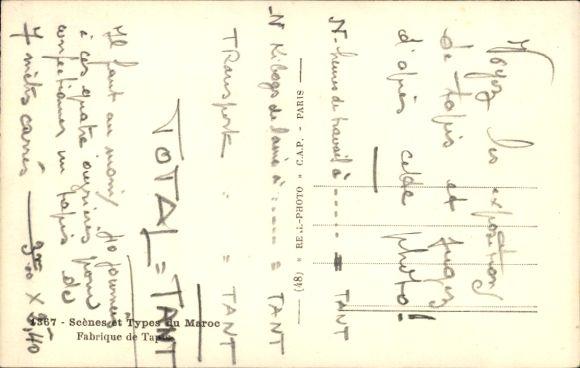 Voyez les expositions
de tapis et jugez
d'après cette photo!
N- heures de travail à ----- = TANT
N Kilogs de laine à ------ = TANT
TRansport " = TANT
TOTAL = TANT
Il faut au moins 40 journées
à ces quatre ouvrières pour
confectionner un tapis de
7 mètres carrés
(48) » REAL-PHOTO » C.A.P. - PARIS
4367 - Scènes et Types du Maroc
Fabrique de Tapis